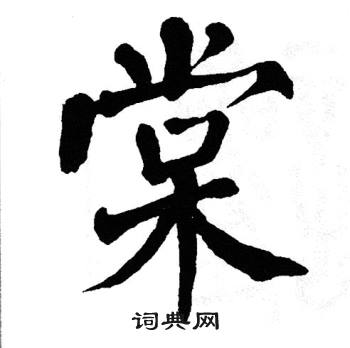 棠
词典网